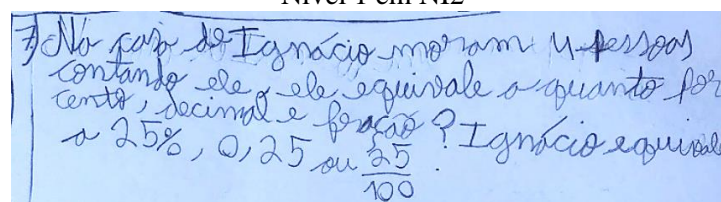 Nível 1 em NI2
7) Na casa de Ignácio moram 4 pessoas
contando ele, ele equivale a quanto por
cento, decimal e fração? Ignácio equivale
a 25%, 0,25 ou 25/100.